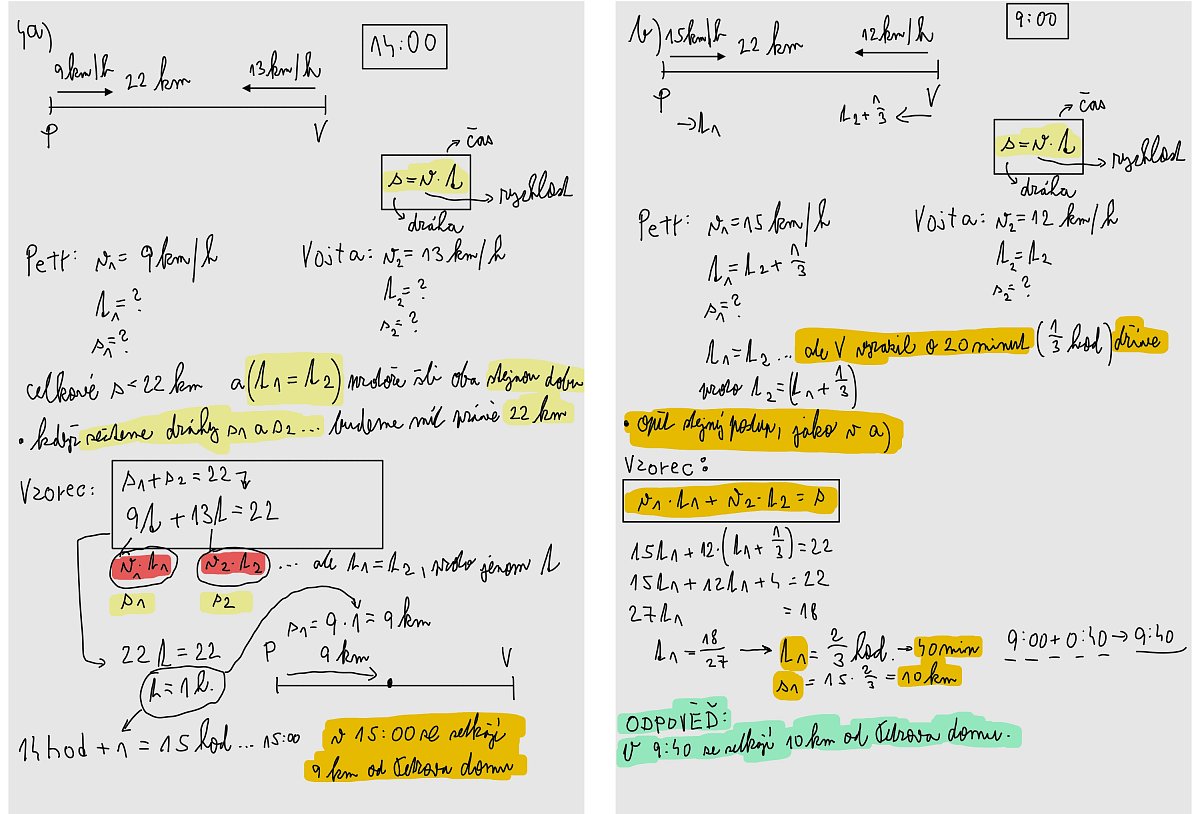 4a)
14:00
9km/h 22 km 13km/h
P V
čas
s=v·t
rychlost
dráha
Petr: v₁= 9km/h Vojta: v₂= 13km/h
t₁=? t₂=?
s₁=? s₂=?
celkové s=22 km a (t₁=t₂) protože šli oba stejnou dobu
• když sečteme dráhy s₁ a s₂... budeme mít právě 22 km
Vzorec: s₁+s₂=22
9t+13t=22
v₁·t₁ v₂·t₂ ... ale t₁=t₂, proto jenom t
s₁ s₂
s₁=9·1=9km
22t=22
P 9km V
t=1h.
14hod+1=15hod... 15:00
v 15:00 se setkají
9 km od Petrova domu
b)
9:00
15km/h 22 km 12km/h
P V
→t₁ t₂+1/3 ←
čas
s=v·t
rychlost
dráha
Petr: v₁=15km/h Vojta: v₂=12 km/h
t₁=t₂+1/3 t₂=t₂
s₁=? s₂=?
t₁=t₂... ale V vyrazil o 20 minut (1/3 hod) dříve
proto t₂=(t₁+1/3)
• opět stejný postup, jako v a)
Vzorec:
v₁·t₁+v₂·t₂=s
15t₁+12·(t₁+1/3)=22
15t₁+12t₁+4=22
27t₁ =18
t₁=18/27 → t₁=2/3 hod. → 40min 9:00+0:40→9:40
s₁=15·2/3=10km
ODPOVĚĎ:
V 9:40 se setkají 10km od Petrova domu.